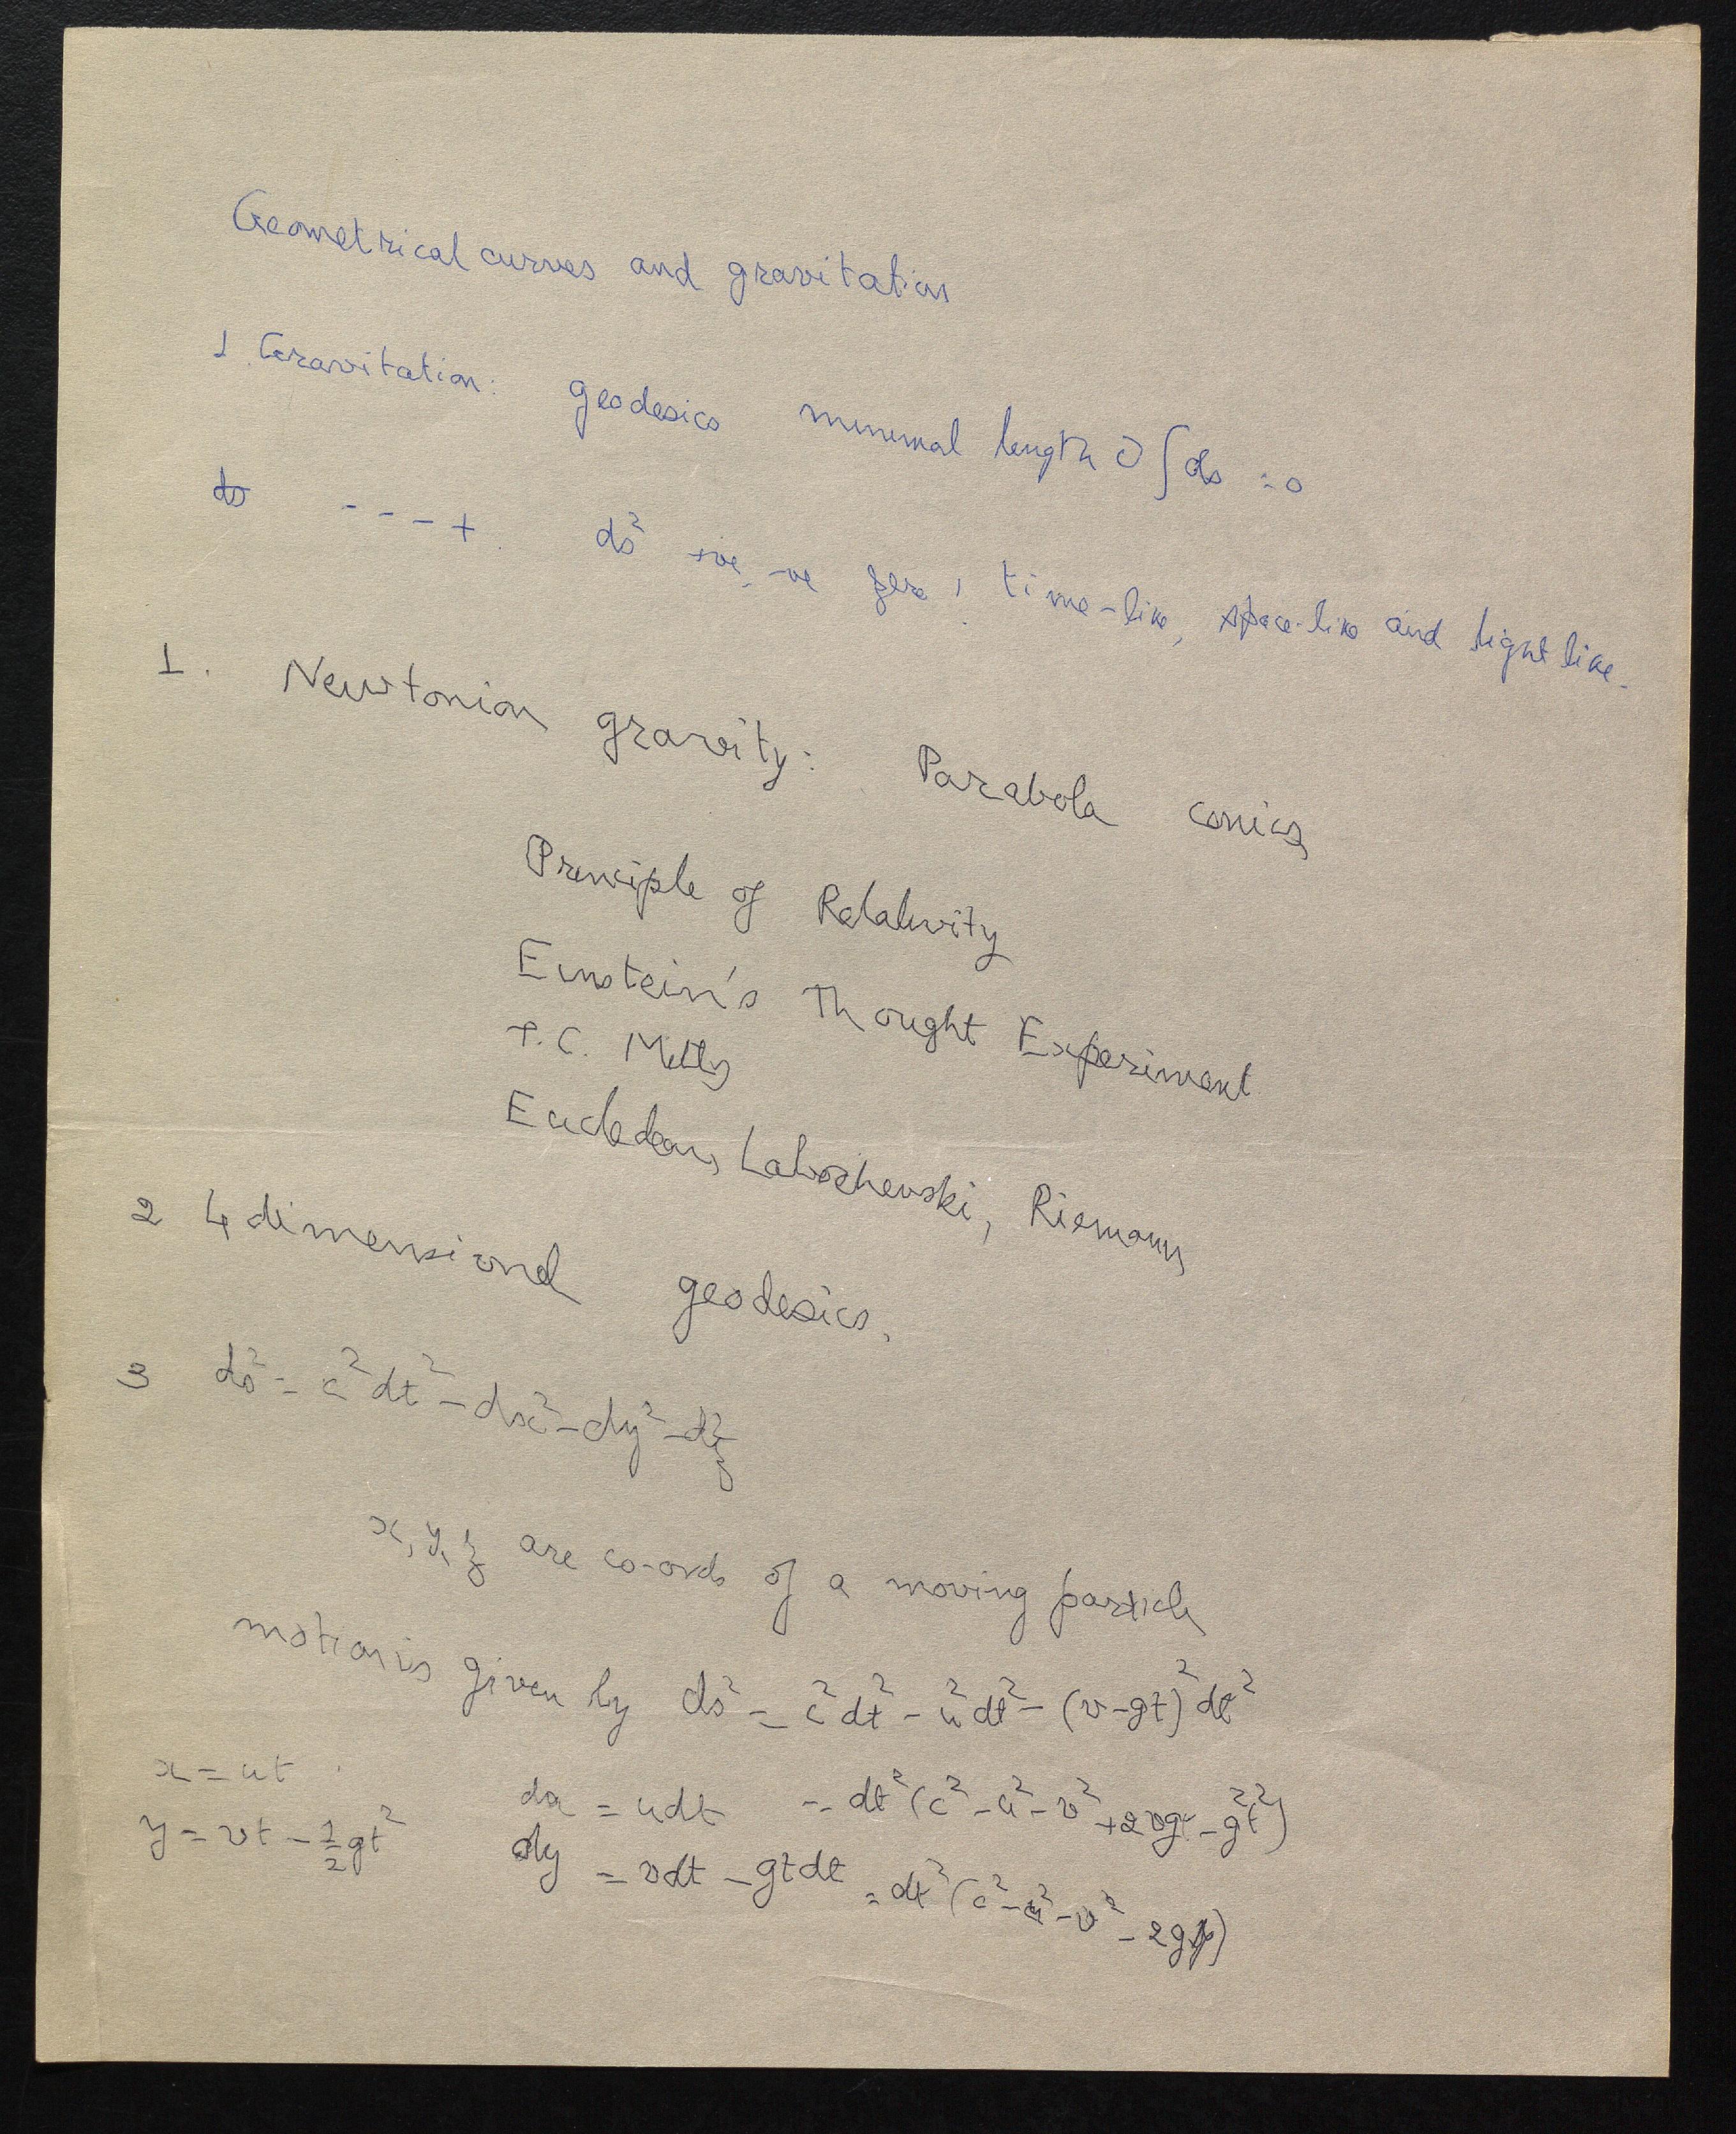 Geometrical curves and gravitation
1. Gravitation: geodesics minimal length ∂∫ds = 0
ds - - - + ds² +ve, -ve zero, time-like, space-like and light like.
1. Newtonian gravity: Parabola conics
Principle of Relativity
Einstein's Thought Experiment
T.C.
Euclidean, Labochevski, Riemann
2 4 dimensional geodesics.
3 ds² = c²dt² - dx² - dy² - dz²
x, y, z are co-ords of a moving particle
motion is given by ds² = c²dt² - u²dt² - (v-gt)²dt²
x = ut dx = udt = dt²(c² - u² - v² + 2vgt - g²t²)
y = vt - ½gt² dy = vdt - gtdt = dt²(c² - u² - v² - 2g